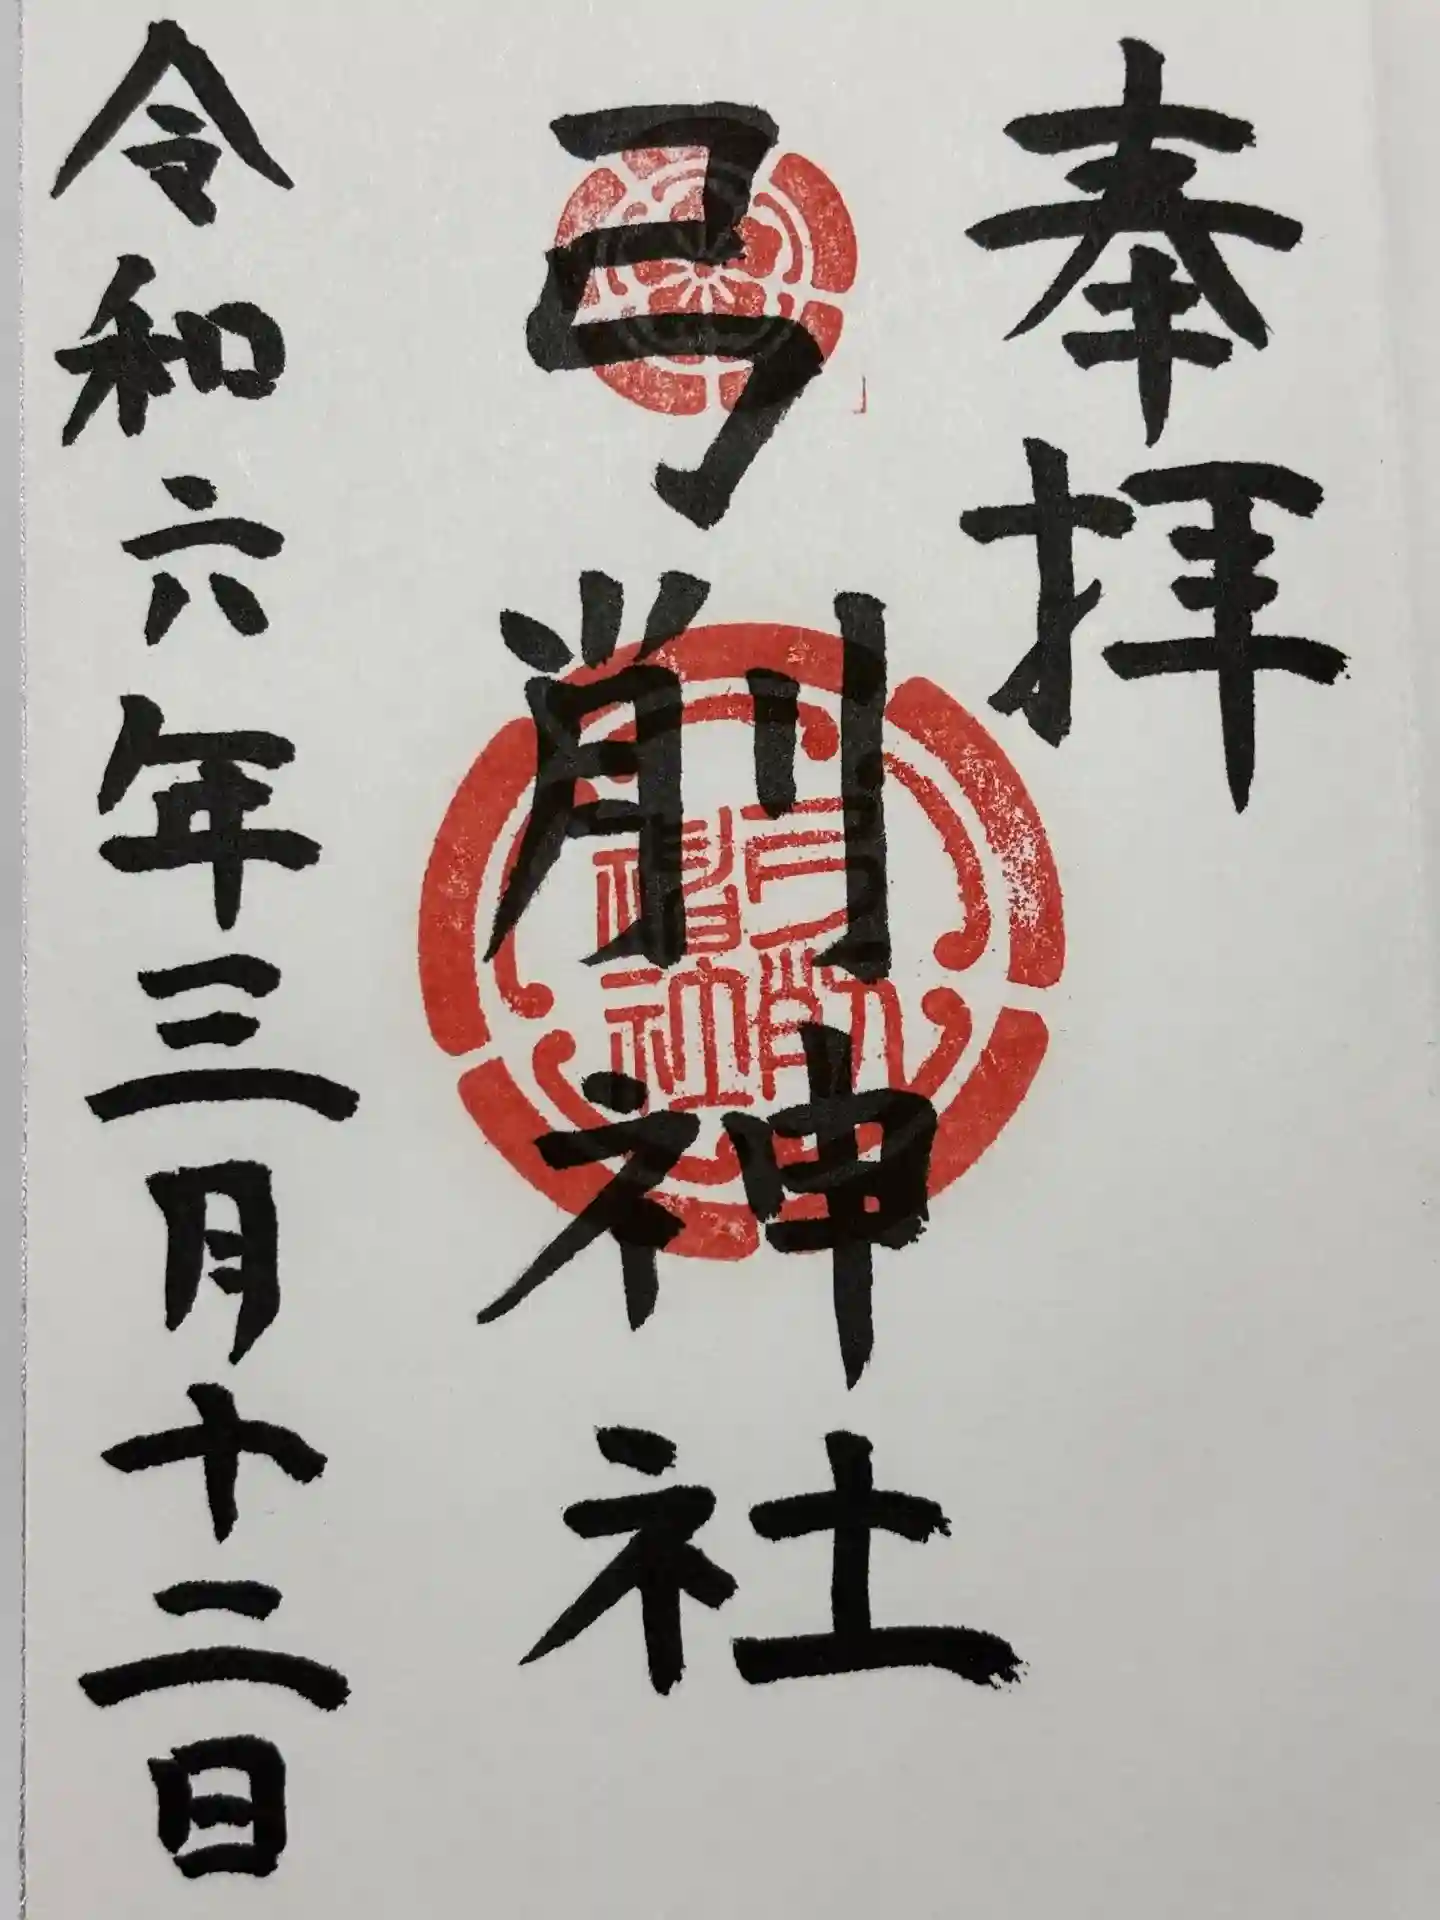 奉拝
弓削神社
弓削神社
令和六年三月十二日